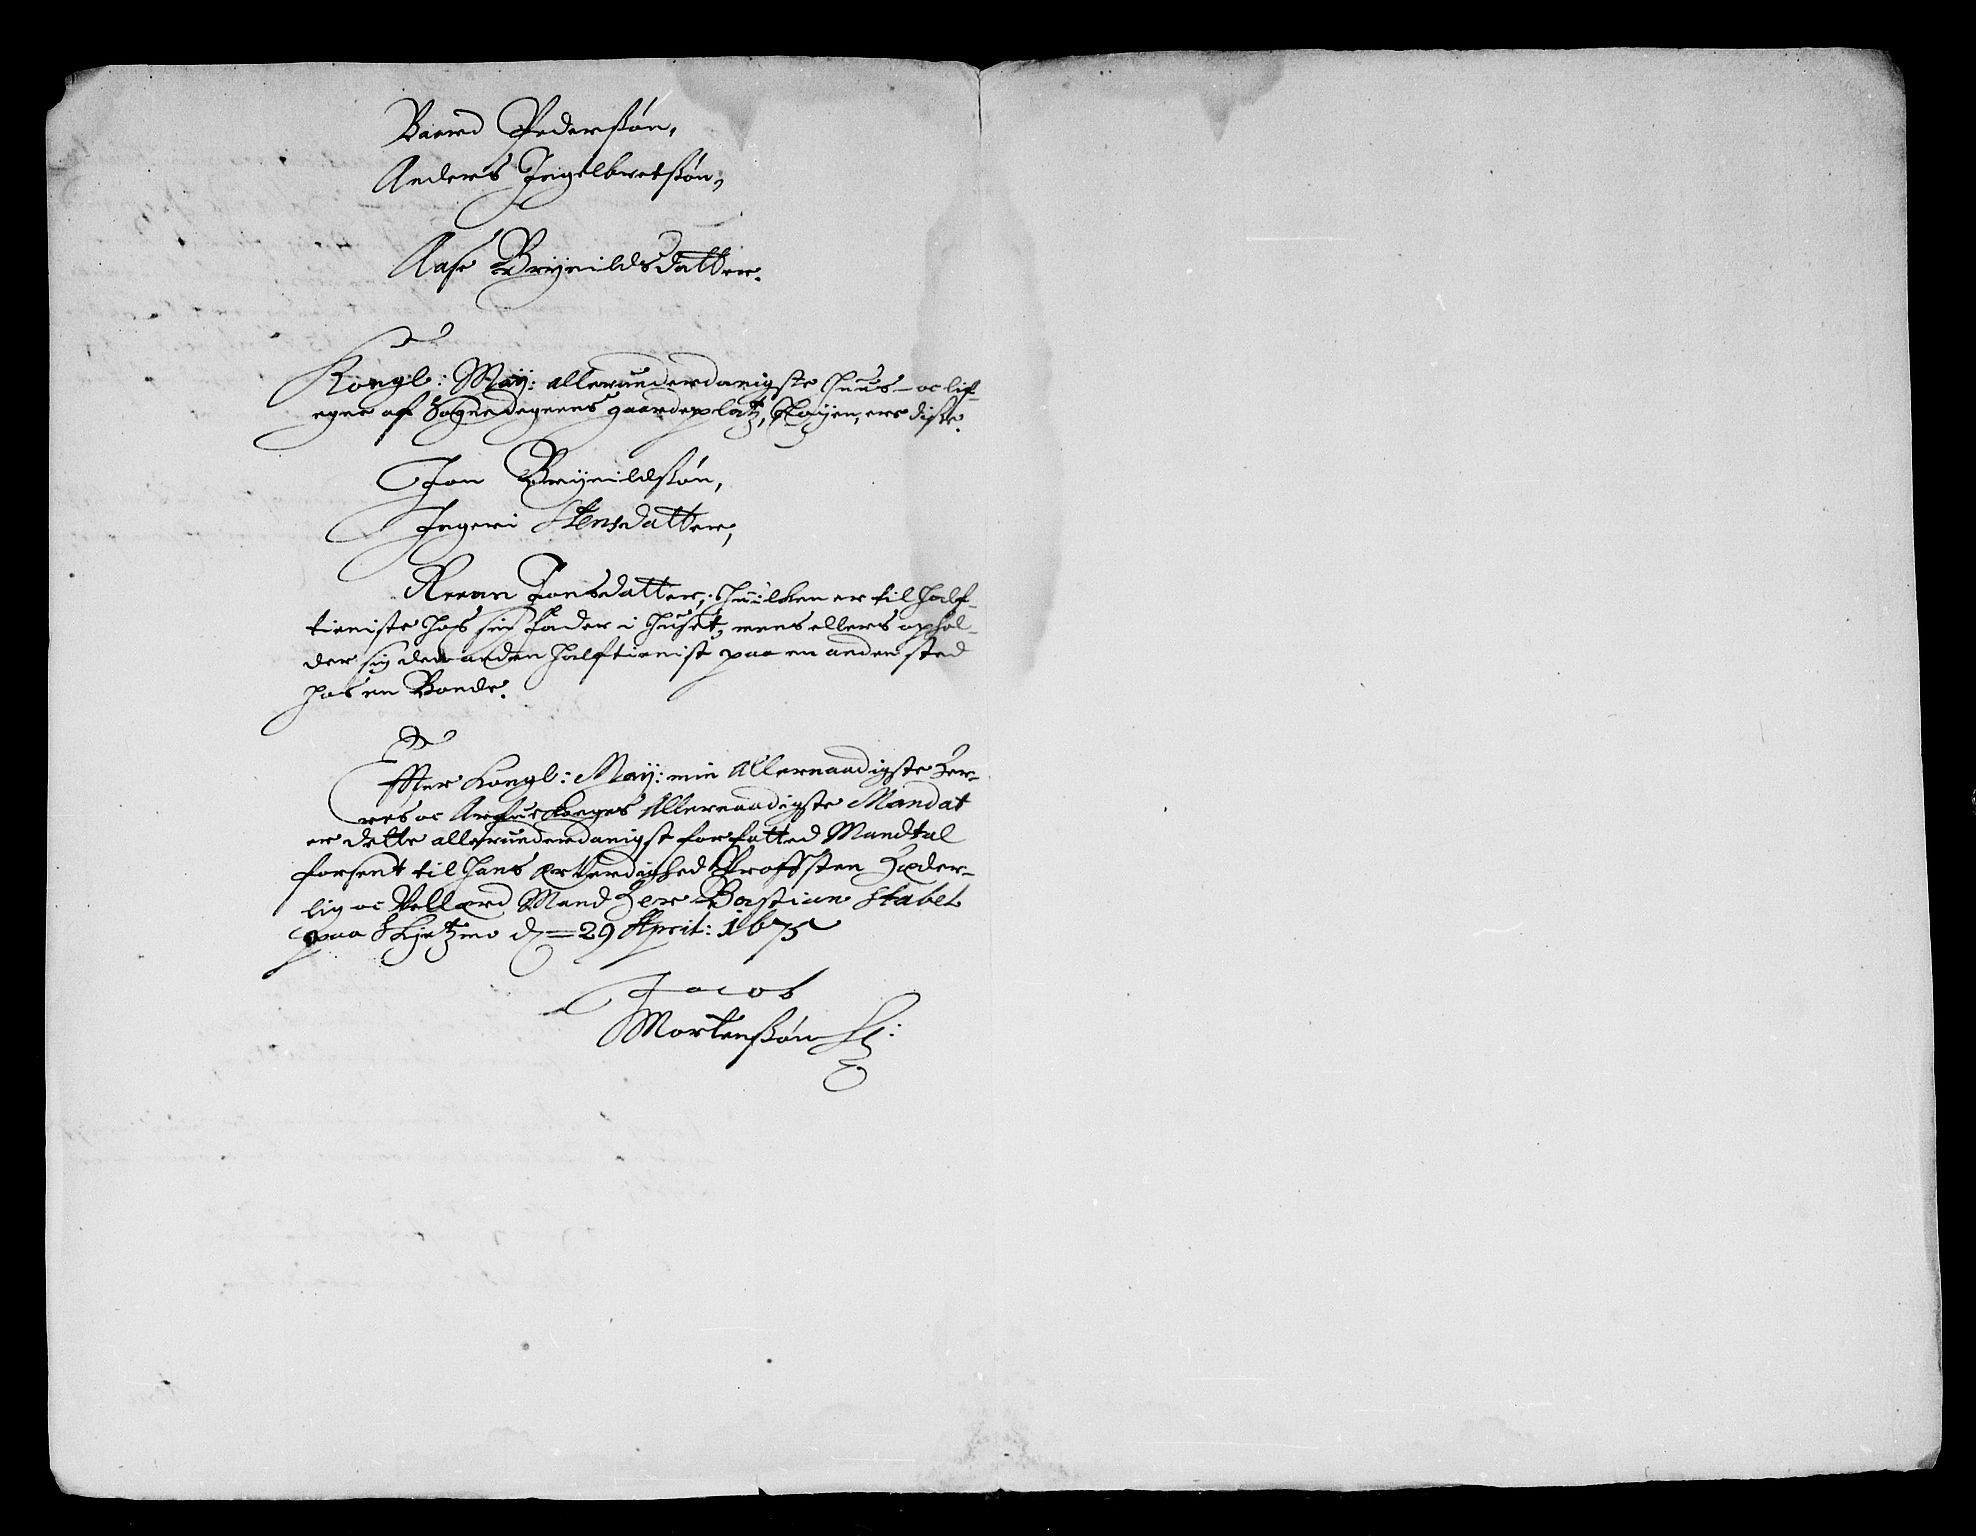 Baard Pedersøn,
Anders Ingelbretsøn,
Aase Brÿnildsdatter.
Kongl: Maÿ: allerunderdanigste Huus- oc lif-
egne af Sognedegnens gaardeplatz, ere diße.
Jon Brÿnildsøn,
Ingeri Stensdatter,
Jonsdatter, huilken er til half-
tieniste hos sin fader i huset, mens ellers ophol-
der sig den anden halftienist paa en anden sted
hos en Bonde.
Effter Kongl: Maÿ: min Allernaadigste Her-
res oc Arfue Konges Allernaadigste Mandat
er dette allerunderdanigst forfatted Mandtal
forsent til Hans ærVerdighed Proffsten Hæder-
lig oc Vellærd Mand Her Bastian Stabel
paa d = 29 April: 1675
Jacob
Mortensøn